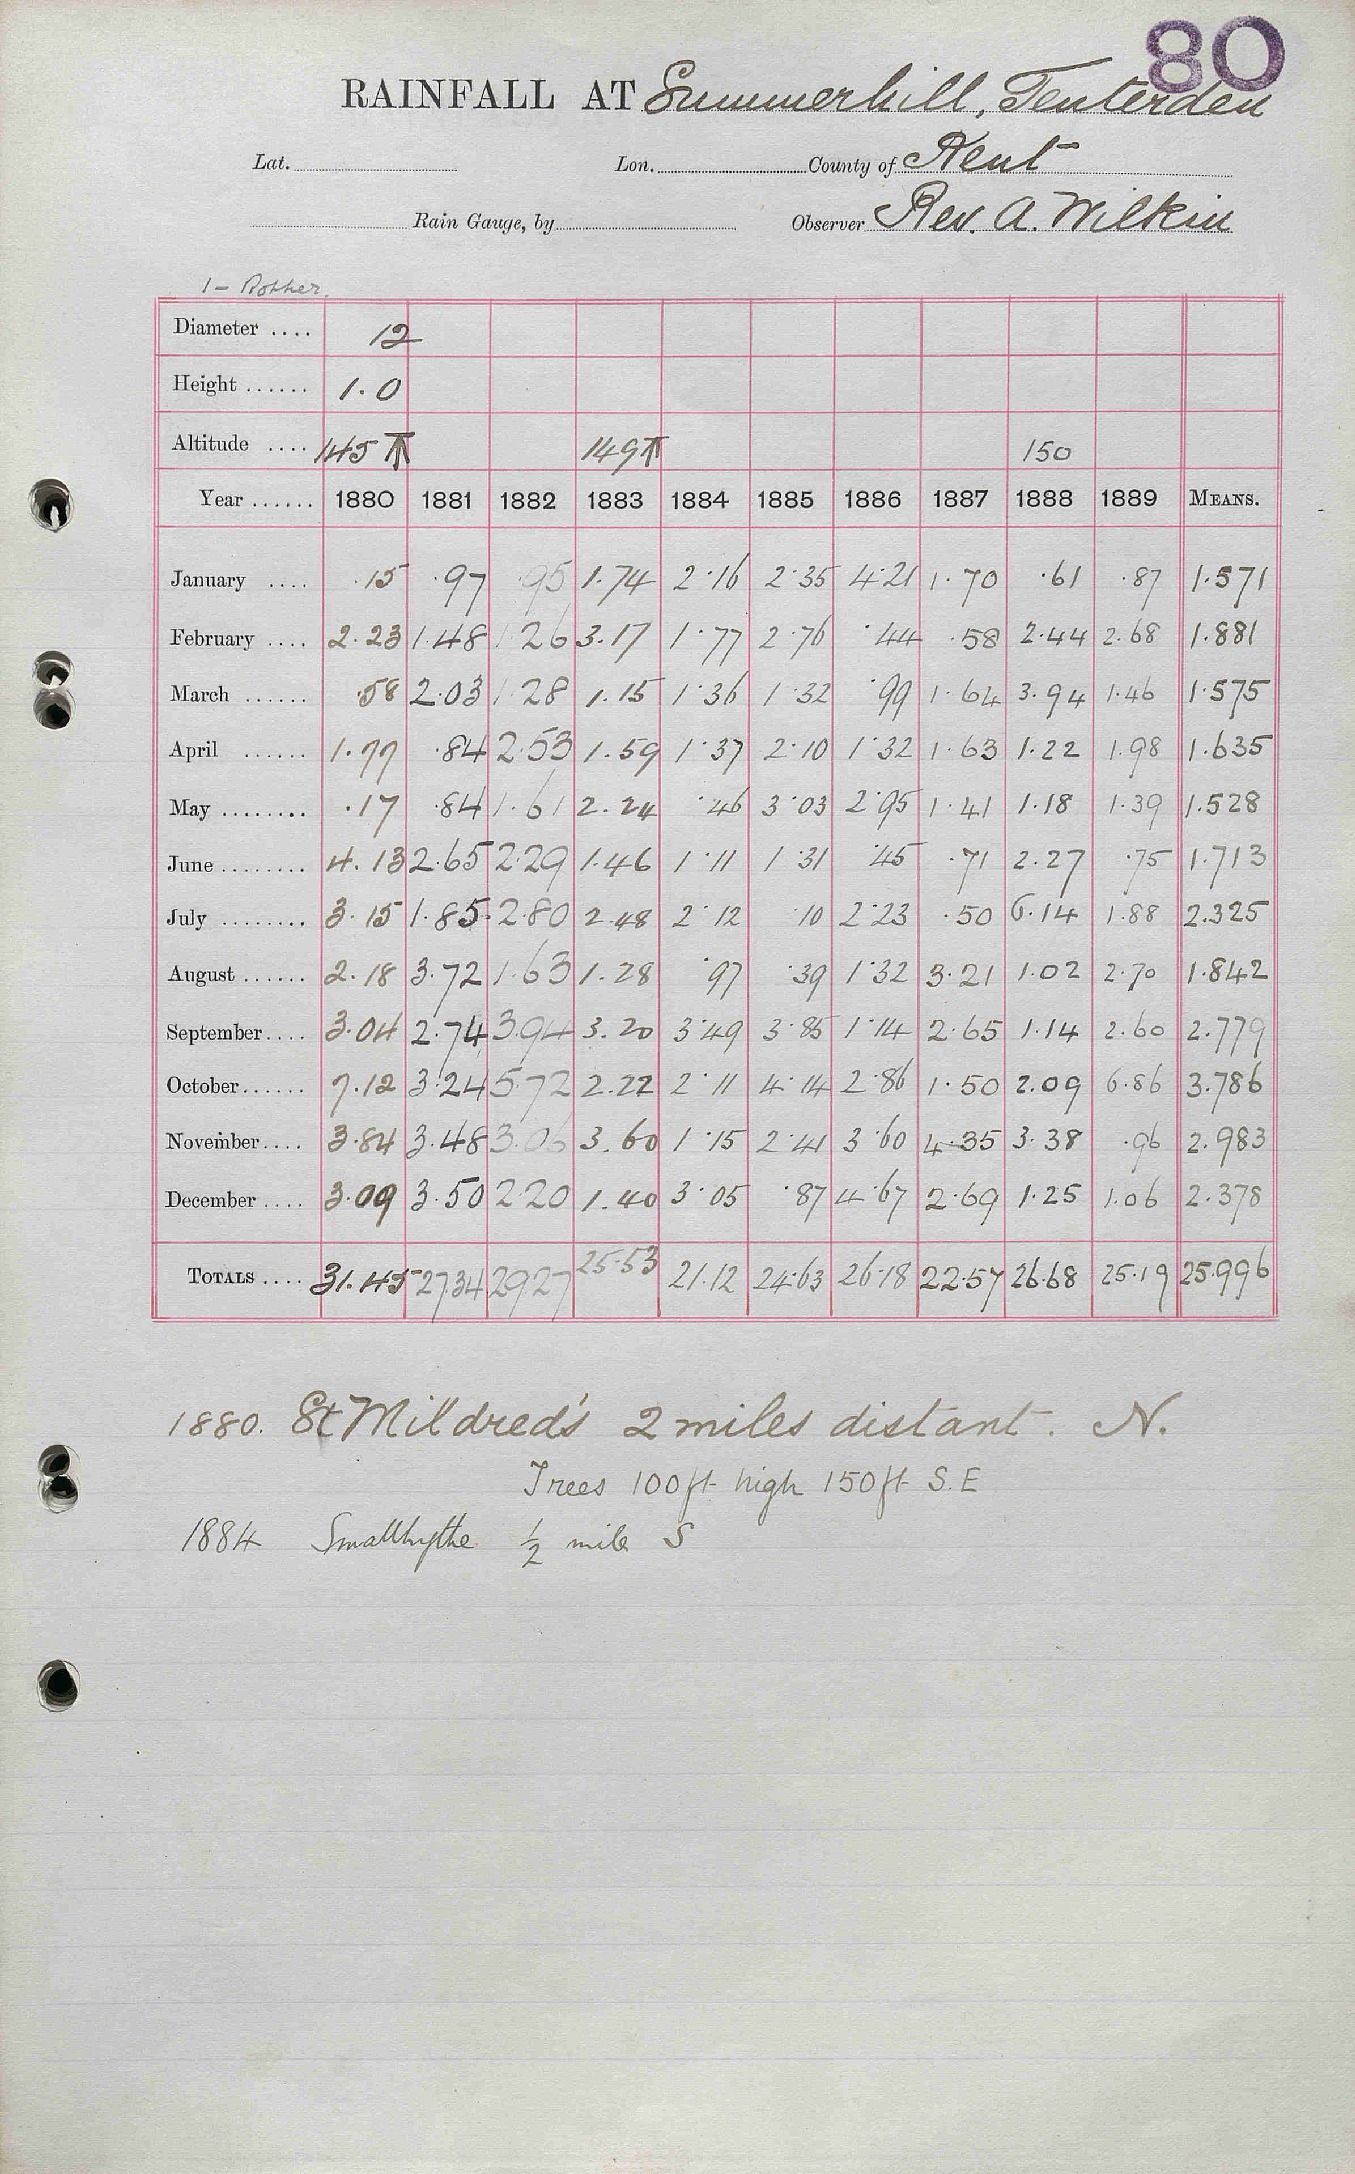 80
RAINFALL AT Summerhill, Tenterden
Lat. Lon. County of Kent
Rain Gauge, by Observer Rev. A. Wilkin
1 - Rother.
Diameter .... 12
Height ...... 1.0
Altitude .... 145 ↑ 149 ↑ 150
Year ...... 1880 1881 1882 1883 1884 1885 1886 1887 1888 1889 MEANS.
January .... .15 .97 .95 1.74 2.16 2.35 4.21 1.70 .61 .87 1.571
February .... 2.23 1.48 1.26 3.17 1.77 2.76 .44 .58 2.44 2.68 1.881
March ...... .58 2.03 1.28 1.15 1.36 1.32 .99 1.64 3.94 1.46 1.575
April ...... 1.77 .84 2.53 1.59 1.37 2.10 1.32 1.63 1.22 1.98 1.635
May ........ .17 .84 1.61 2.24 .46 3.03 2.95 1.41 1.18 1.39 1.528
June ........ 4.13 2.65 2.29 1.46 1.11 1.31 .45 .71 2.27 .75 1.713
July ........ 3.15 1.85 2.80 2.48 2.12 .10 2.23 .50 6.14 1.88 2.325
August ...... 2.18 3.72 1.63 1.28 .97 .39 1.32 3.21 1.02 2.70 1.842
September.... 3.04 2.74 3.94 3.20 3.49 3.85 1.14 2.65 1.14 2.60 2.779
October...... 7.12 3.24 5.72 2.22 2.11 4.14 2.86 1.50 2.09 6.86 3.786
November.... 3.84 3.48 3.06 3.60 1.15 2.41 3.60 4.35 3.38 .96 2.983
December .... 3.09 3.50 2.20 1.40 3.05 .87 4.67 2.69 1.25 1.06 2.378
TOTALS .... 31.45 27.34 29.27 25.53 21.12 24.63 26.18 22.57 26.68 25.19 25.996
1880. St Mildred's 2 miles distant. N.
Trees 100ft high 150ft S.E
1884 Smallhythe ½ mile S